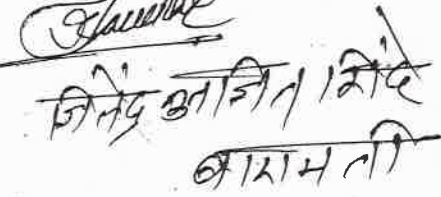 जितेंद्र अजित शिंदे
बारामती